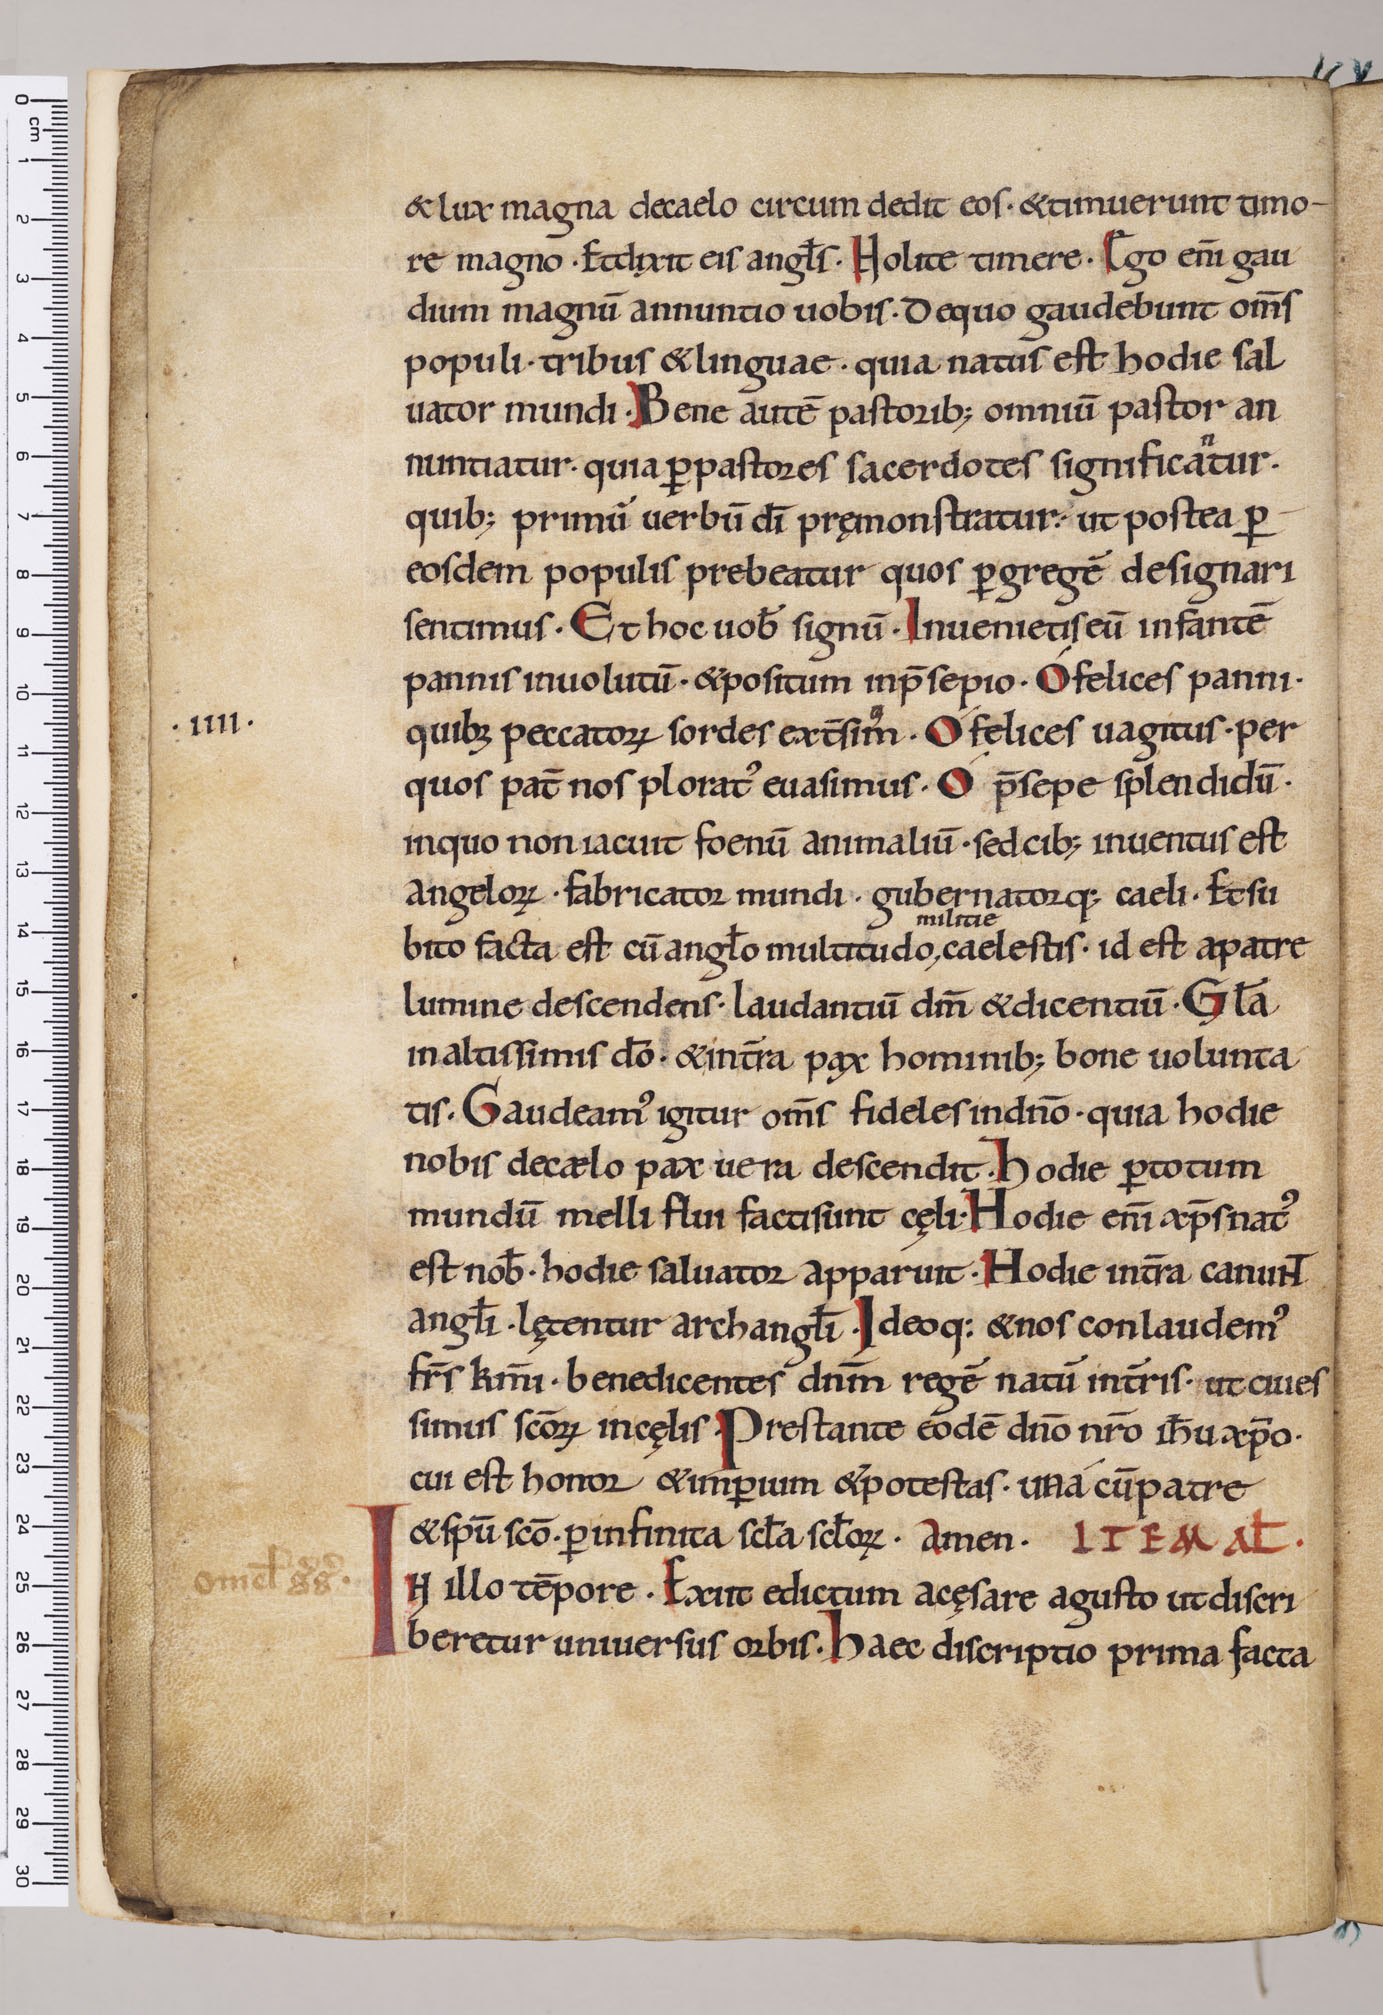 & lux magna decaelo circum dedit eos · &timuerunt timo-
re magno · Etdixit eis angl̄s · Nolite timere · Ego eni̅ gau
dium magnū annuntio uobis · Dequo gaudebunt om̅s
populi · tribus &linguae · quia natus est hodie sal
uator mundi · Bene autē pastorib; omniū pastor an
nuntiatur · quia ꝑpastores sacerdotes significa\n/tur ·
quib; primū uerbū dī pręmonstratur · ut postea ꝑ
eosdem populis prebeatur quos ꝑgregē designari
sentimus · Et hoc uob̄ signū · Inuenietis eū infantē
pannis inuolutū · &positum inp̄sepio · O felices panni ·
· IIII ·
quibꝫ peccatoꝝ sordes ext̄sim᷒ · O felices uagitus · per
quos pat̄ nos plorat᷒ euasimus · O p̄sepe splendidū ·
inquo non iacuit foenū animaliū · sed cib; inuentus est
angeloꝝ · fabricator mundi · gubernatorq; caeli · Etsu
bito facta est cū angl̄o multitudo, \militie/ caelestis · id est apatre
lumine descendens · laudantiū dm̄ &dicentiū · Gl̄a
inaltissimis dō · &int̄ra pax hominib; bone uolunta
tis · Gaudeam᷒ igitur om̅s fideles indn̄o · quia hodie
nobis decælo pax uera descendit · hodie ꝑtotum
mundū melli flui factisunt cęli · Hodie eni̅ xp̄s nat᷒
est nob̄ · hodie saluator apparuit · Hodie int̄ra canunt
angl̄i · lętentur archangl̄i · Ideoq: &nos conlaudem᷒
fr̄s km̄i · benedicentes dn̄m regē natū int̄ris · ut ciues
simus scōꝝ incęlis · Prestante eodē dn̄o nr̄o ih̄u xp̄o ·
cui est honor &imꝑium &potestas · una cū patre
&spū scō · ꝑ infinita scl̄a scl̄oꝝ · amen · ITEM AL̄ ·
omel̄ gg ·
IN illo tēpore · Exiit edictum acęsare agusto ut discri
beretur uniuersus orbis · haec discriptio prima facta